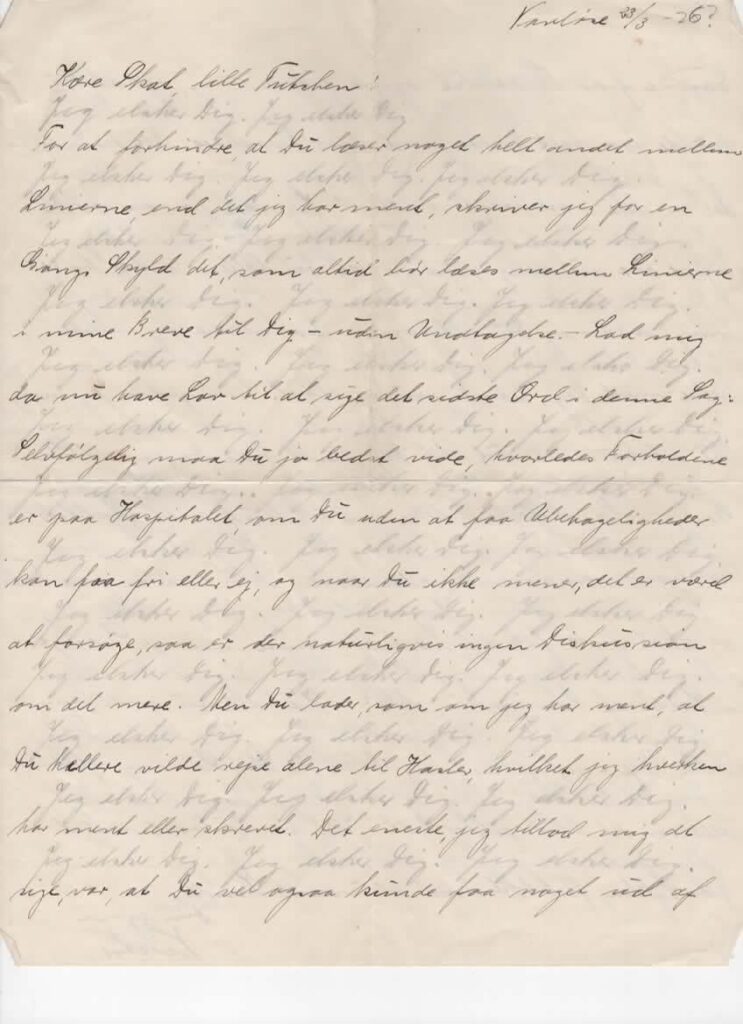 Vanløse 23/3 - 26?
Kære Skat, lille Tutchen!
Jeg elsker Dig. Jeg elsker Dig
For at forhindre, at Du læser noget helt andet mellem
Jeg elsker Dig. Jeg elsker Dig. Jeg elsker Dig.
Linierne, end det jeg har ment, skriver jeg for en
Jeg elsker Dig. - Jeg elsker Dig. Jeg elsker Dig.
Gangs Skyld det, som altid bør læses mellem Linierne
Jeg elsker Dig. Jeg elsker Dig. Jeg elsker Dig.
i mine Breve til Dig - uden Undtagelse. - Lad mig
Jeg elsker Dig. Jeg elsker Dig. Jeg elsker Dig.
da nu have Lov til at sige det sidste Ord i denne Sag:
Jeg elsker Dig. Jeg elsker Dig. Jeg elsker Dig.
Selvfølgelig maa Du jo bedst vide, hvorledes Forholdene
Jeg elsker Dig. Jeg elsker Dig. Jeg elsker Dig.
er paa Hospitalet, om Du uden at faa Ubehageligheder
Jeg elsker Dig. Jeg elsker Dig. Jeg elsker Dig.
kan faa fri eller ej, og naar Du ikke mener, det er værd
Jeg elsker Dig. Jeg elsker Dig. Jeg elsker Dig
at forsøge, saa er der naturligvis ingen Diskussion
Jeg elsker Dig. Jeg elsker Dig. Jeg elsker Dig.
om det mere. Men Du lader, som om jeg har ment, at
Jeg elsker Dig. Jeg elsker Dig. Jeg elsker Dig
Du hellere vilde rejse alene til Hasler, hvilket jeg hverken
Jeg elsker Dig. Jeg elsker Dig. Jeg elsker Dig.
har ment eller skrevet. Det eneste, jeg tillod mig at
Jeg elsker Dig. Jeg elsker Dig. Jeg elsker Dig.
sige, var, at Du vel ogsaa kunde faa noget ud af